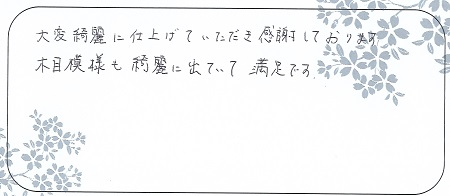 大変綺麗に仕上げていただき感謝しております
木目模様も綺麗に出ていて 満足です。